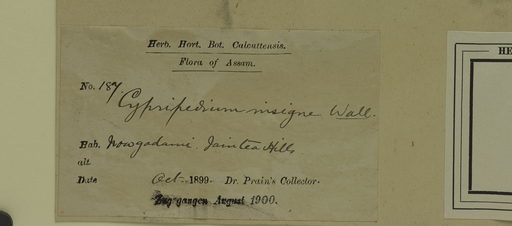 Herb. Hort. Bot. Calcuttensis.
Flora of Assam.
No. 187.
Cypripedium insigne Wall.
Hab. Nowgadami. Jaintea Hills
alt.
Date Oct. 1899. Dr. Prain's Collector.
Zugegangen August 1900.
HE